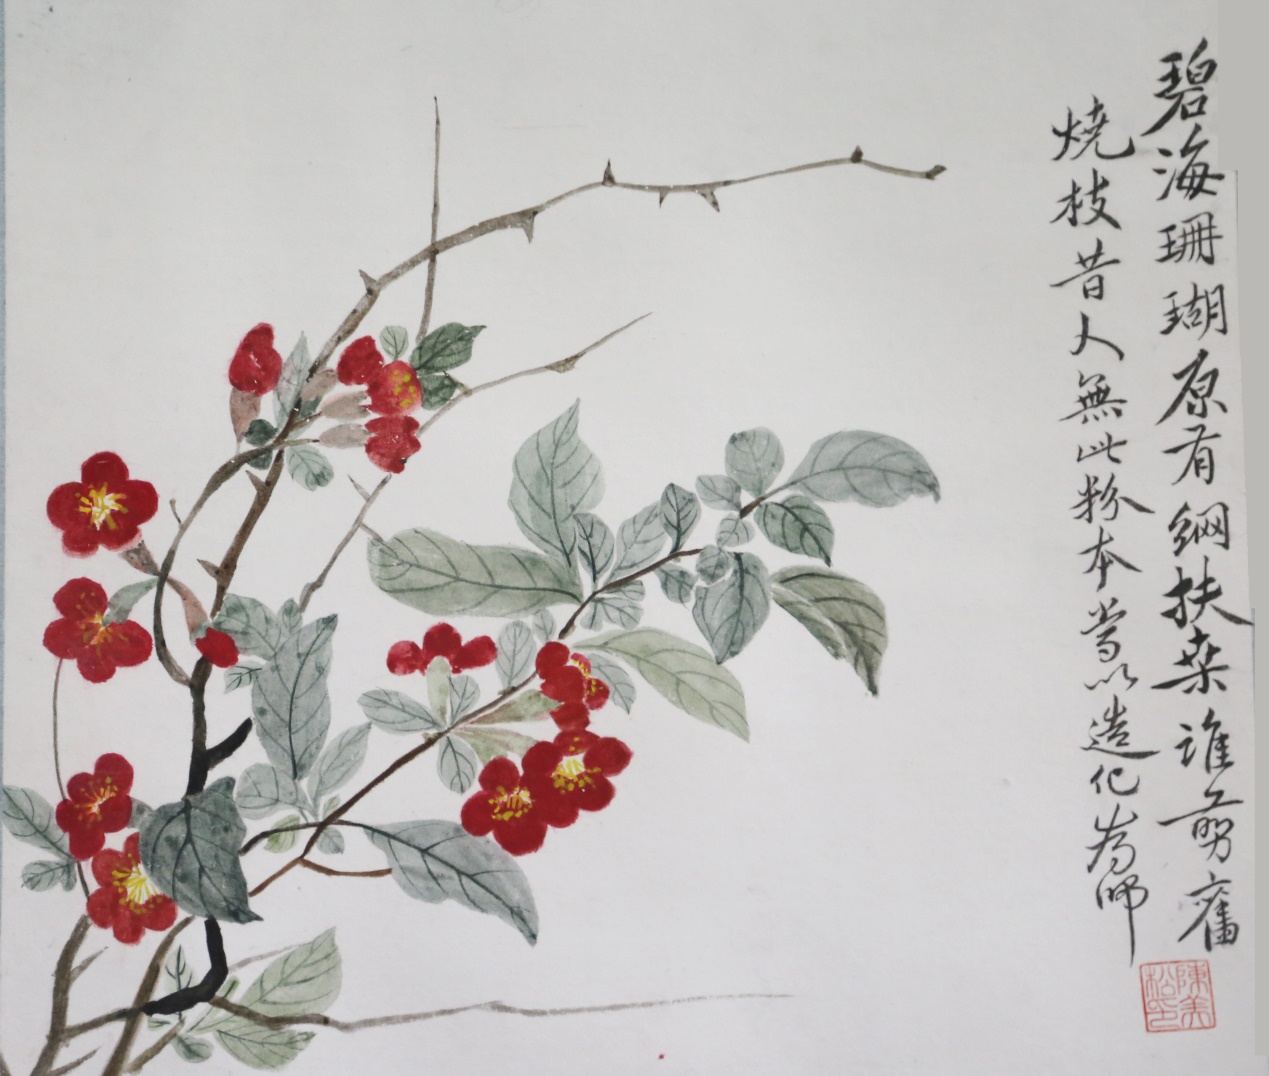 碧海珊瑚原有網扶桑誰剪舊
燒枝昔人無此粉本当以造化為師
陳美
松印